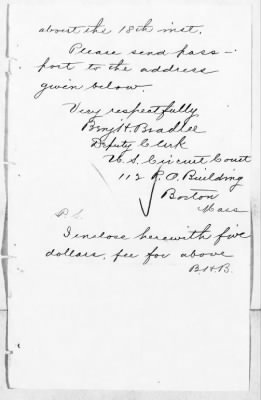 about the 18th inst.
Please send pass-
port to the address
given below.
Very respectfully
Benj H. Bradlee
Deputy Clerk
U.S. Circuit Court
112 P.O. Building
Boston
Mass
P.S.
I enclose herewith five
dollars, fee for above
B.H.B.